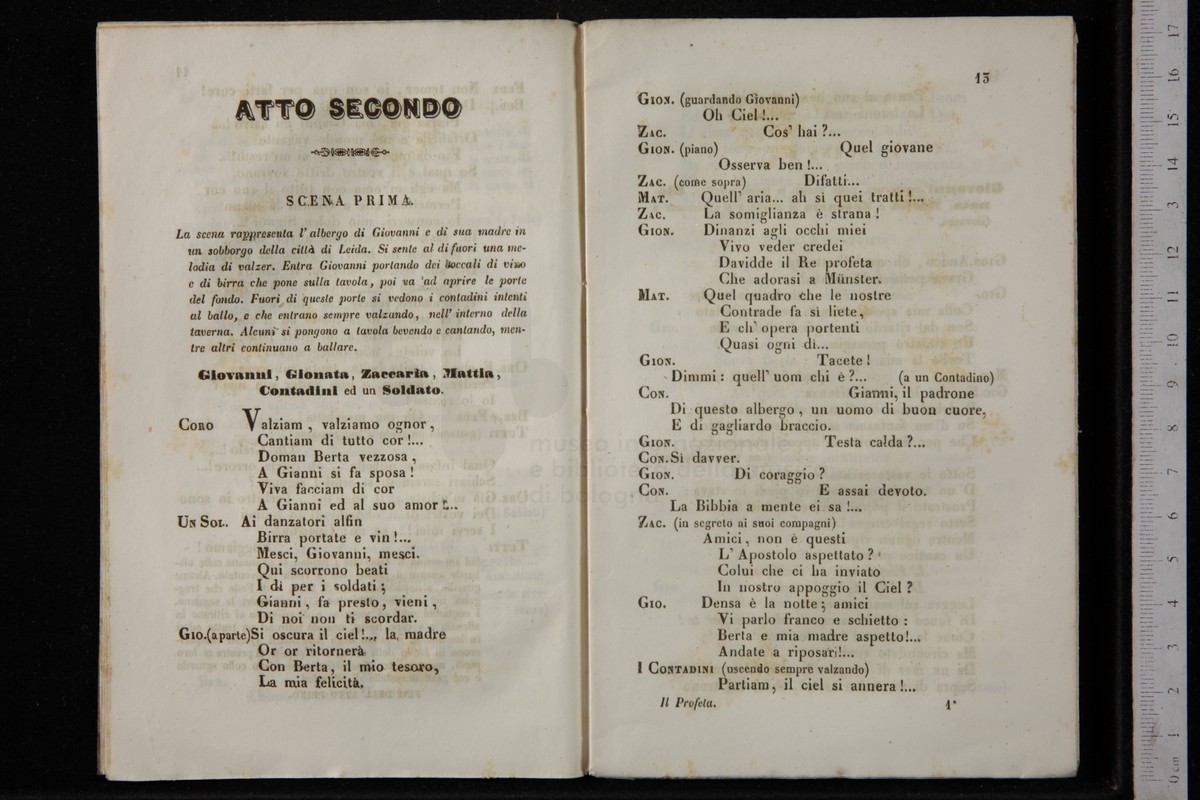 ATTO SECONDO
SCENA PRIMA.
La scena rappresenta l' albergo di Giovanni e di sua madre in
un sobborgo della città di Leida. Si sente al di fuori una me-
lodia di valzer. Entra Giovanni portando dei boccali di vino
e di birra che pone sulla tavola, poi va ad aprire le porte
del fondo. Fuori di queste porte si vedono i contadini intenti
al ballo, e che entrano sempre valzando, nell' interno della
taverna. Alcuni si pongono a tavola bevendo e cantando, men-
tre altri continuano a ballare.
Giovanni, Gionata, Zaccaria, Mattia,
Contadini ed un Soldato.
CORO Valziam, valziamo ognor,
Cantiam di tutto cor!...
Doman Berta vezzosa,
A Gianni si fa sposa!
Viva facciam di cor
A Gianni ed al suo amor!..
UN SOL. Ai danzatori alfin
Birra portate e vin!...
Mesci, Giovanni, mesci.
Qui scorrono beati
I dì per i soldati;
Gianni, fa presto, vieni,
Di noi non ti scordar.
GIO.(a parte)Si oscura il ciel!... la madre
Or or ritornerà
Con Berta, il mio tesoro,
La mia felicità.
13
GION. (guardando Giovanni)
Oh Ciel!...
ZAC. Cos' hai?...
GION. (piano) Quel giovane
Osserva ben!...
ZAC. (come sopra) Difatti...
MAT. Quell' aria... ah sì quei tratti!...
ZAC. La somiglianza è strana!
GION. Dinanzi agli occhi miei
Vivo veder credei
Davidde il Re profeta
Che adorasi a Münster.
MAT. Quel quadro che le nostre
Contrade fa sì liete,
E ch' opera portenti
Quasi ogni dì...
GION. Tacete!
Dimmi: quell' uom chi è?... (a un Contadino)
CON. Gianni, il padrone
Di questo albergo, un uomo di buon cuore,
E di gagliardo braccio.
GION. Testa calda?...
CON. Sì davver.
GION. Di coraggio?
CON. E assai devoto.
La Bibbia a mente ei sa!...
ZAC. (in segreto ai suoi compagni)
Amici, non è questi
L' Apostolo aspettato?
Colui che ci ha inviato
In nostro appoggio il Ciel?
GIO. Densa è la notte; amici
Vi parlo franco e schietto:
Berta e mia madre aspetto!...
Andate a riposar!...
I CONTADINI (uscendo sempre valzando)
Partiam, il ciel si annera!...
Il Profeta. 1*